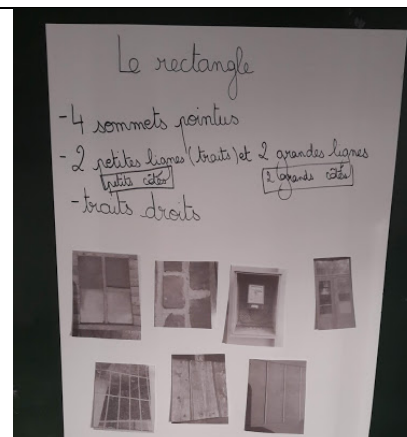 Le rectangle
-4 sommets pointus
-2 petites lignes (traits) et 2 grandes lignes
petits côtés 2 grands côtés
-traits droits